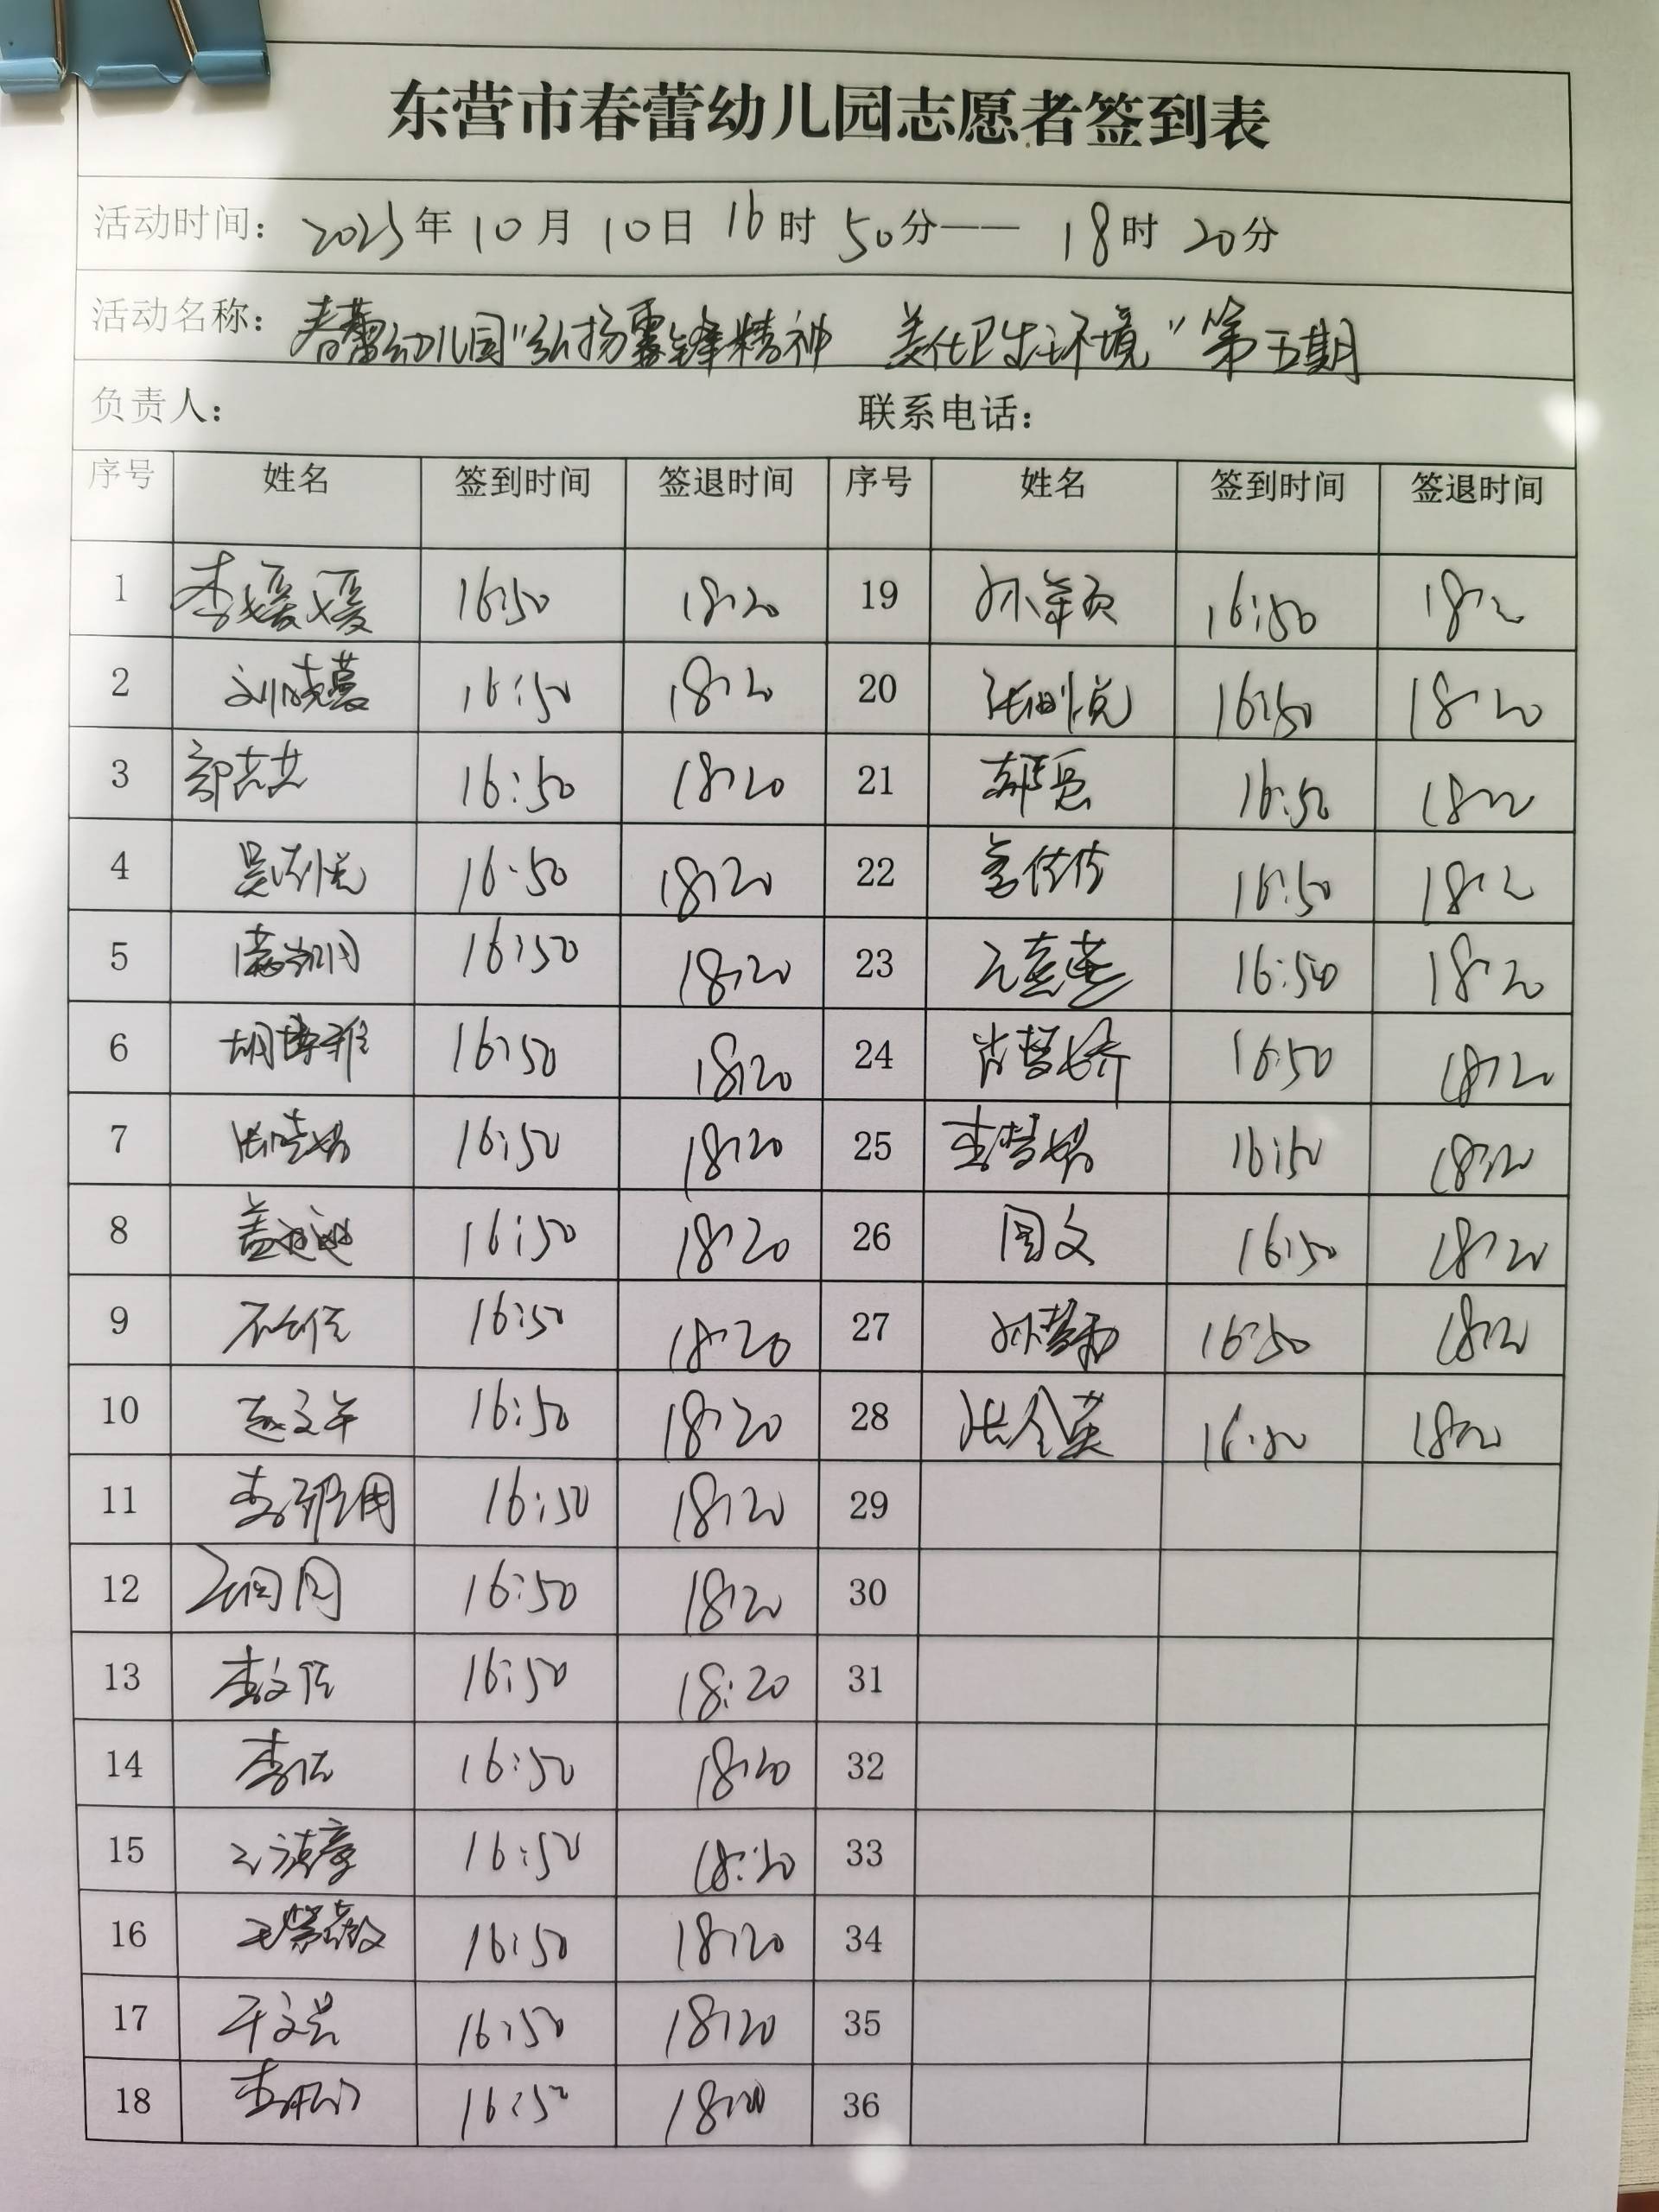 东营市春蕾幼儿园志愿者签到表
活动时间：2023年10月10日16时50分——18时20分
活动名称：春蕾幼儿园"弘扬雷锋精神 美化卫生环境"第五期
负责人： 联系电话：
序号 姓名 签到时间 签退时间 序号 姓名 签到时间 签退时间
1 李媛媛 16:50 18:20 19 孙笑颖 16:50 18:20
2 刘晓蔓 16:50 18:20 20 16:50 18:20
3 16:50 18:20 21 16:50 18:20
4 16:50 18:20 22 16:50 18:20
5 16:50 18:20 23 16:50 18:20
6 胡梦雅 16:50 18:20 24 肖梦娇 16:50 18:20
7 张晓娟 16:50 18:20 25 李梦娟 16:50 18:20
8 16:50 18:20 26 周文 16:50 18:20
9 16:50 18:20 27 16:50 18:20
10 赵文年 16:50 18:20 28 张令英 16:50 18:20
11 16:50 18:20 29
12 16:50 18:20 30
13 李文佳 16:50 18:20 31
14 16:50 18:20 32
15 16:50 18:20 33
16 16:50 18:20 34
17 16:50 18:20 35
18 16:50 18:20 36